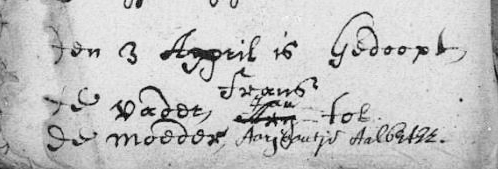 den 3 April is Gedoopt,
Frans
de vader, Jan tol
de moeder, Aalbertse.